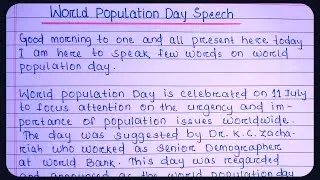 World Population Day Speech
Good morning to one and all present here today
I am here to speak few words on world
population day.
World population Day is celebrated on 11 July
to focus attention on the urgency and im-
portance of population issues worldwide.
The day was suggested by Dr. K.C. Zacha-
riah who worked as Senior Demographer
at World Bank. This day was regarded
and announced as the world population day